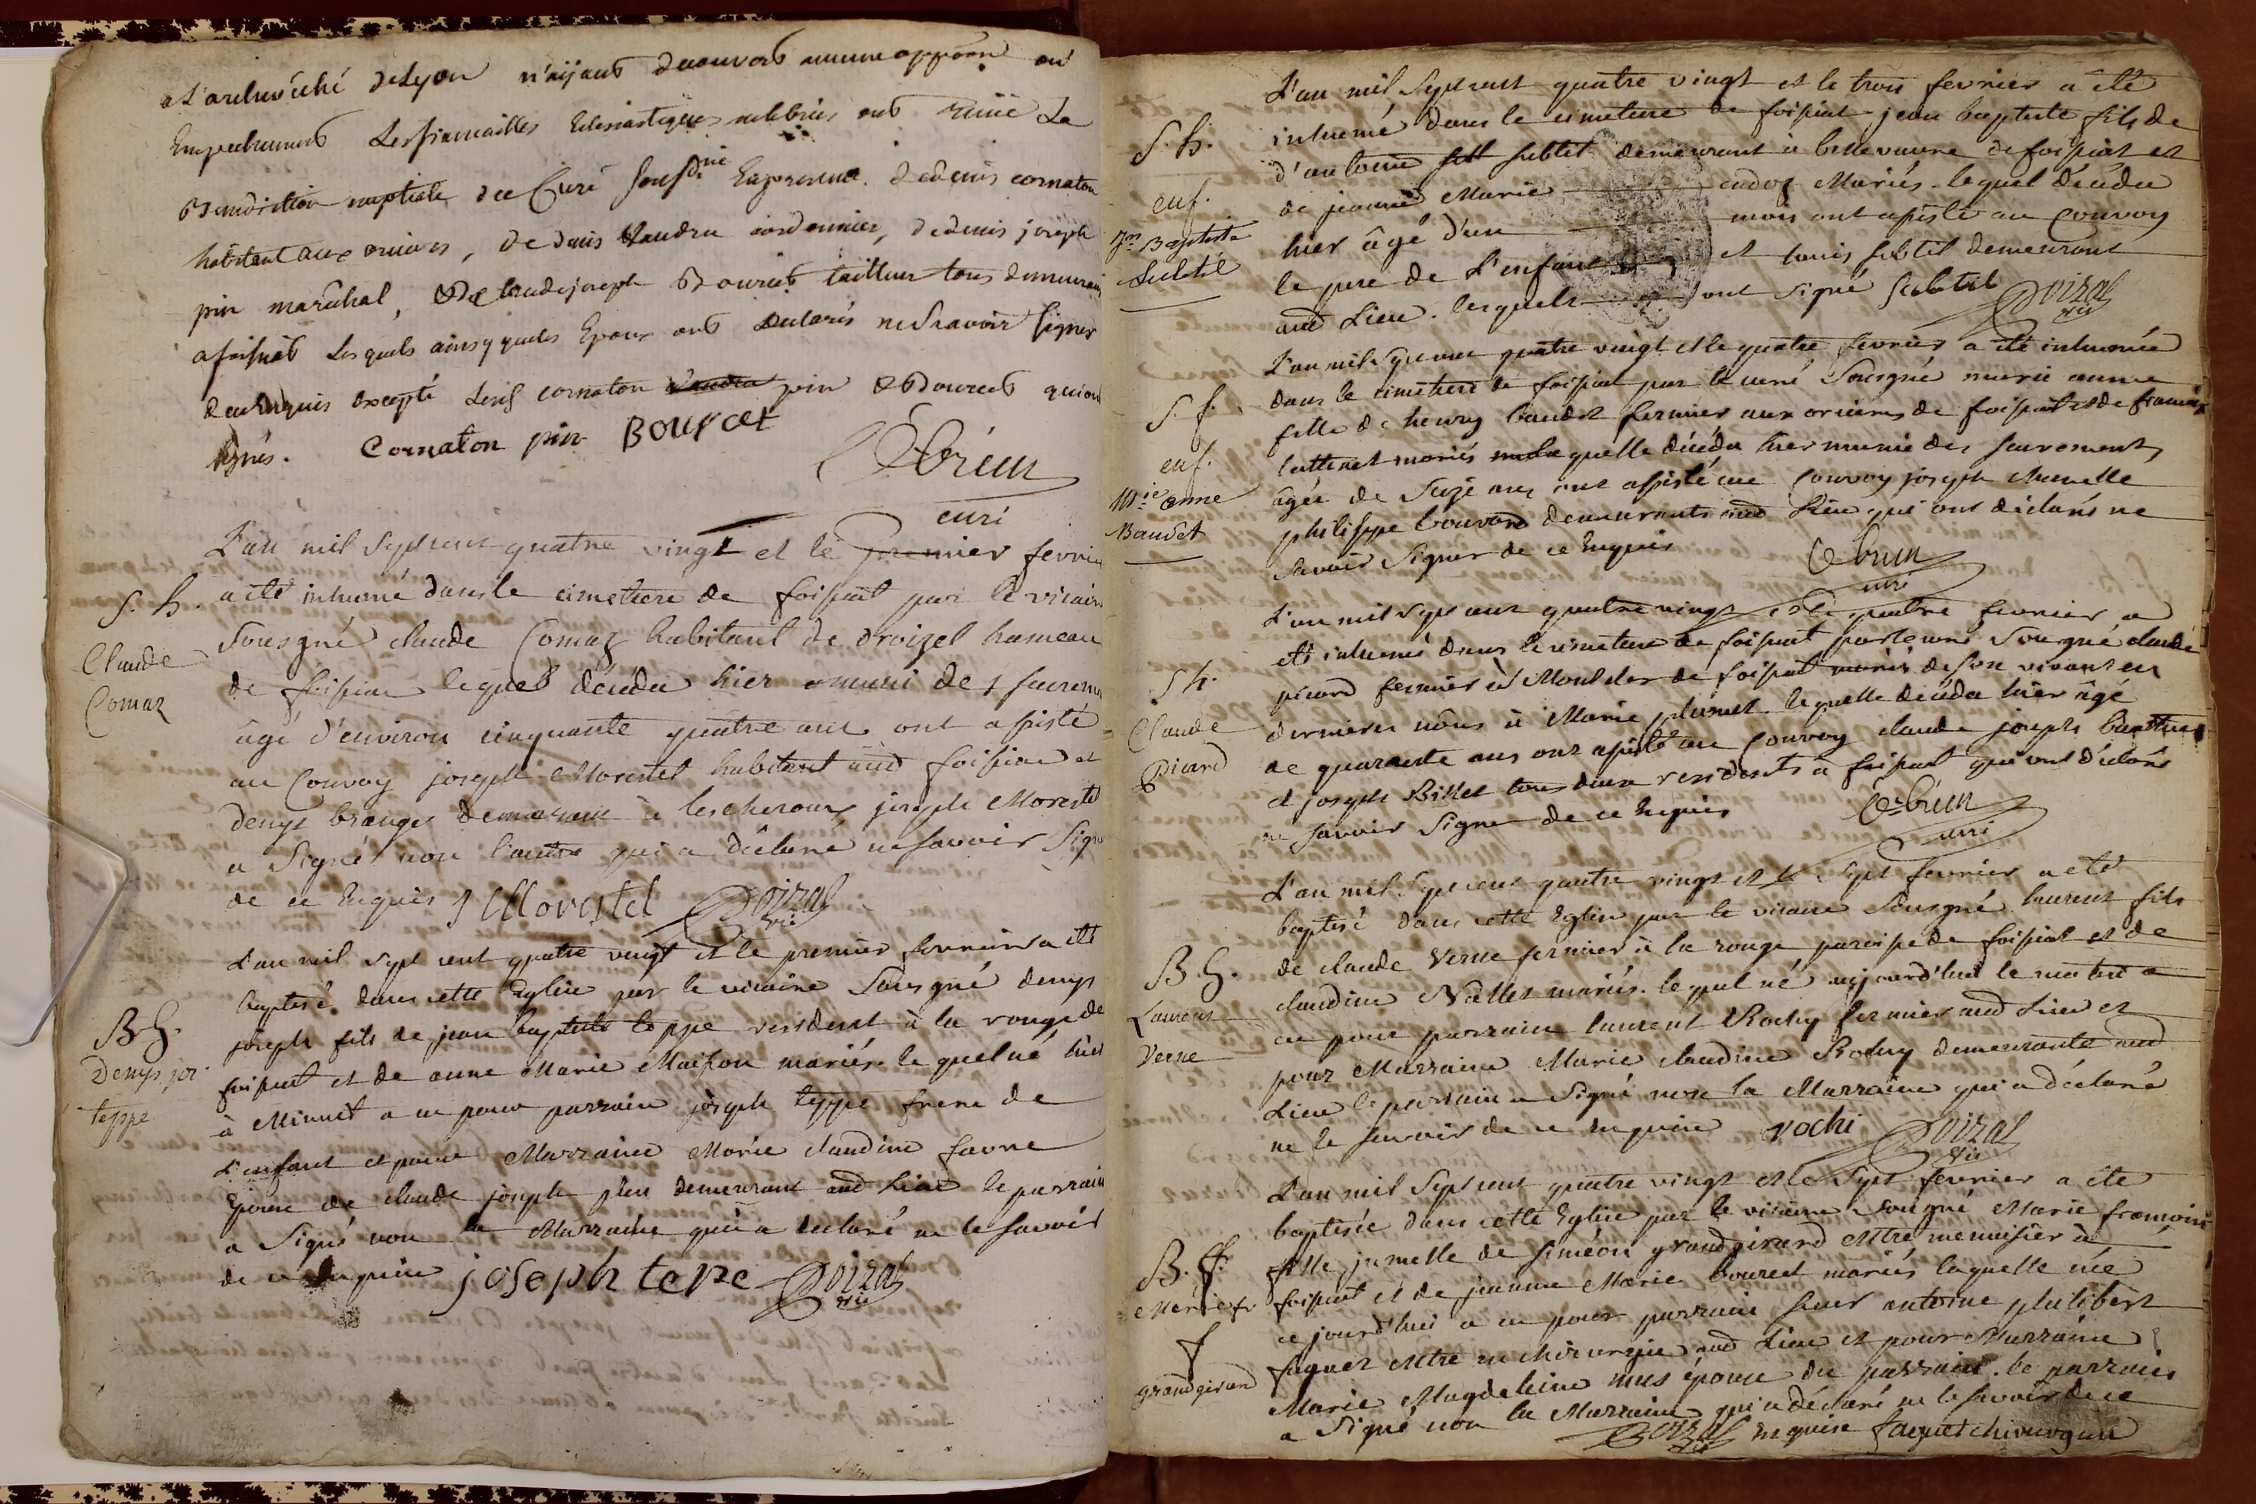 a L'archevêché de Lyon n'aijant decouvert aucune oppōon ou
Empechement Les fiancailles Eclesiastiques celebrées ont reçue La
Benediction nuptiale du Curé sousg.né En presence de denis cornaton
habitant aux orieres, de denis Vaudra cordonnier, de denis joseph
pin maréchal, & De claude joseph Bourcet tailleur tous demeurans
a foissiat Lesquels ainsy que les Epoux ont declarés ne scavoir signer
de ce Enquis excepté Denis cornaton pin & Bourcet qui ont
signés. Cornaton pin Bourcet
Debrun
curé
L'an mil sept cent quatre vingt et le premier fevrier
S. h. a été inhumé dans le cimetiere de foissiat par le vicaire
Claude sousgné claude Comaz habitant de Droizel hameau
Comaz de foissiat lequel décéda hier muni des sacremens
âgé d'environ cinquante quatre ans ont assisté
au Convoy joseph Morestel habitant aud foissiat et
denys brange demeurant à lescheroux joseph Morestel
a signé non l'autre qui a déclaré ne savoir signer
de ce Enquis J Morestel Doizal
vic
L'an mil sept cent quatre vingt et le premier fevrier a été
baptisé dans cette Eglise par le vicaire sousgné denys
B h. joseph fils de jean baptiste teppe resident à la rouge de
Denys jos. foissiat et de anne Marie Maison mariés lequel né hier
teppe à Minuit a eu pour parrain joseph teppe frere de
L'enfant et pour Marraine Marie claudine favre
Epouse de claude joseph demeurant aud Lieu le parrain
a signé non la Marraine qui a declaré ne le savoir
de ce enquise joseph tepe Doizal
vic
L'an mil sept cent quatre vingt et le trois fevrier a été
S. h. inhumé dans le cimetiere de foissiat jean baptiste fils de
d'antoine subtil demeurant à bellevavre de foissiat et
enf. de jeanne Marie cadoz Mariés lequel décéda
jn Baptiste hier âgé d'un mois ont assisté au Convoy
Subtil le pere de L'enfant et louis subtil demeurant
aud Lieu. lesquels ont signé Subtil Doizal
vic
L'an mil sept cent quatre vingt et le quatre fevrier a été inhumée
S. f. dans le cimetiere de foissiat par le curé sousgné marie anne
fille de henry baudet fermier aux orieres de foissiat et de
enf. mariés laquelle décéda hier munie des sacremens
M.ie anne âgée de seize ans ont assisté au Convoy joseph
Baudet philippe bouvard demeurants aud Lieu qui ont déclaré ne
savoir signer de ce Enquis Debrun
curé
L'an mil sept cent quatre vingt et le quatre fevrier a
été inhumé dans le cimetiere de foissiat par le curé sousgné claude
S h. picard fermier à de foissiat mariés de son vivant en
Claude dernieres nôces à Marie laquelle décéda hier âgé
Picard de quarante ans ont assisté au Convoy claude joseph
et joseph Billet tous deux residents à foissiat qui ont déclaré
ne savoir signer de ce Enquis Debrun
curé
L'an mil sept cent quatre vingt et le sept fevrier a été
baptisé dans cette Eglise par le vicaire sousgné laurent fils
B h. de claude Verne fermier à la rouge paroisse de foissiat et de
Laurent claudine Nallet mariés. lequel né aujourd'hui le matin a
Verne eu pour parrain laurent Rochy fermier aud Lieu et
pour Marraine Marie claudine Rochy demeurante aud
Lieu le parrain a signé non la Marraine qui a déclaré
ne le savoir de ce enquise rochi Doizal
vic
L'an mil sept cent quatre vingt et le sept fevrier a été
baptisée dans cette Eglise par le vicaire sousgné Marie francoise
B. f. fille jumelle de siméon grandgirard Mtre menuisier à
Marie fr foissiat et de jeanne Marie bourcet mariés laquelle née
f ce jourd'hui a eu pour parrain sieur antoine philibert
grandgirard faguet Mtre en chirurgie aud Lieu et pour Marraine
Marie Magdeleine épouse du parrain. le parrain
a signé non la Marraine qui a déclaré ne le savoir de ce
Doizal vic enquise faguet chirurgien